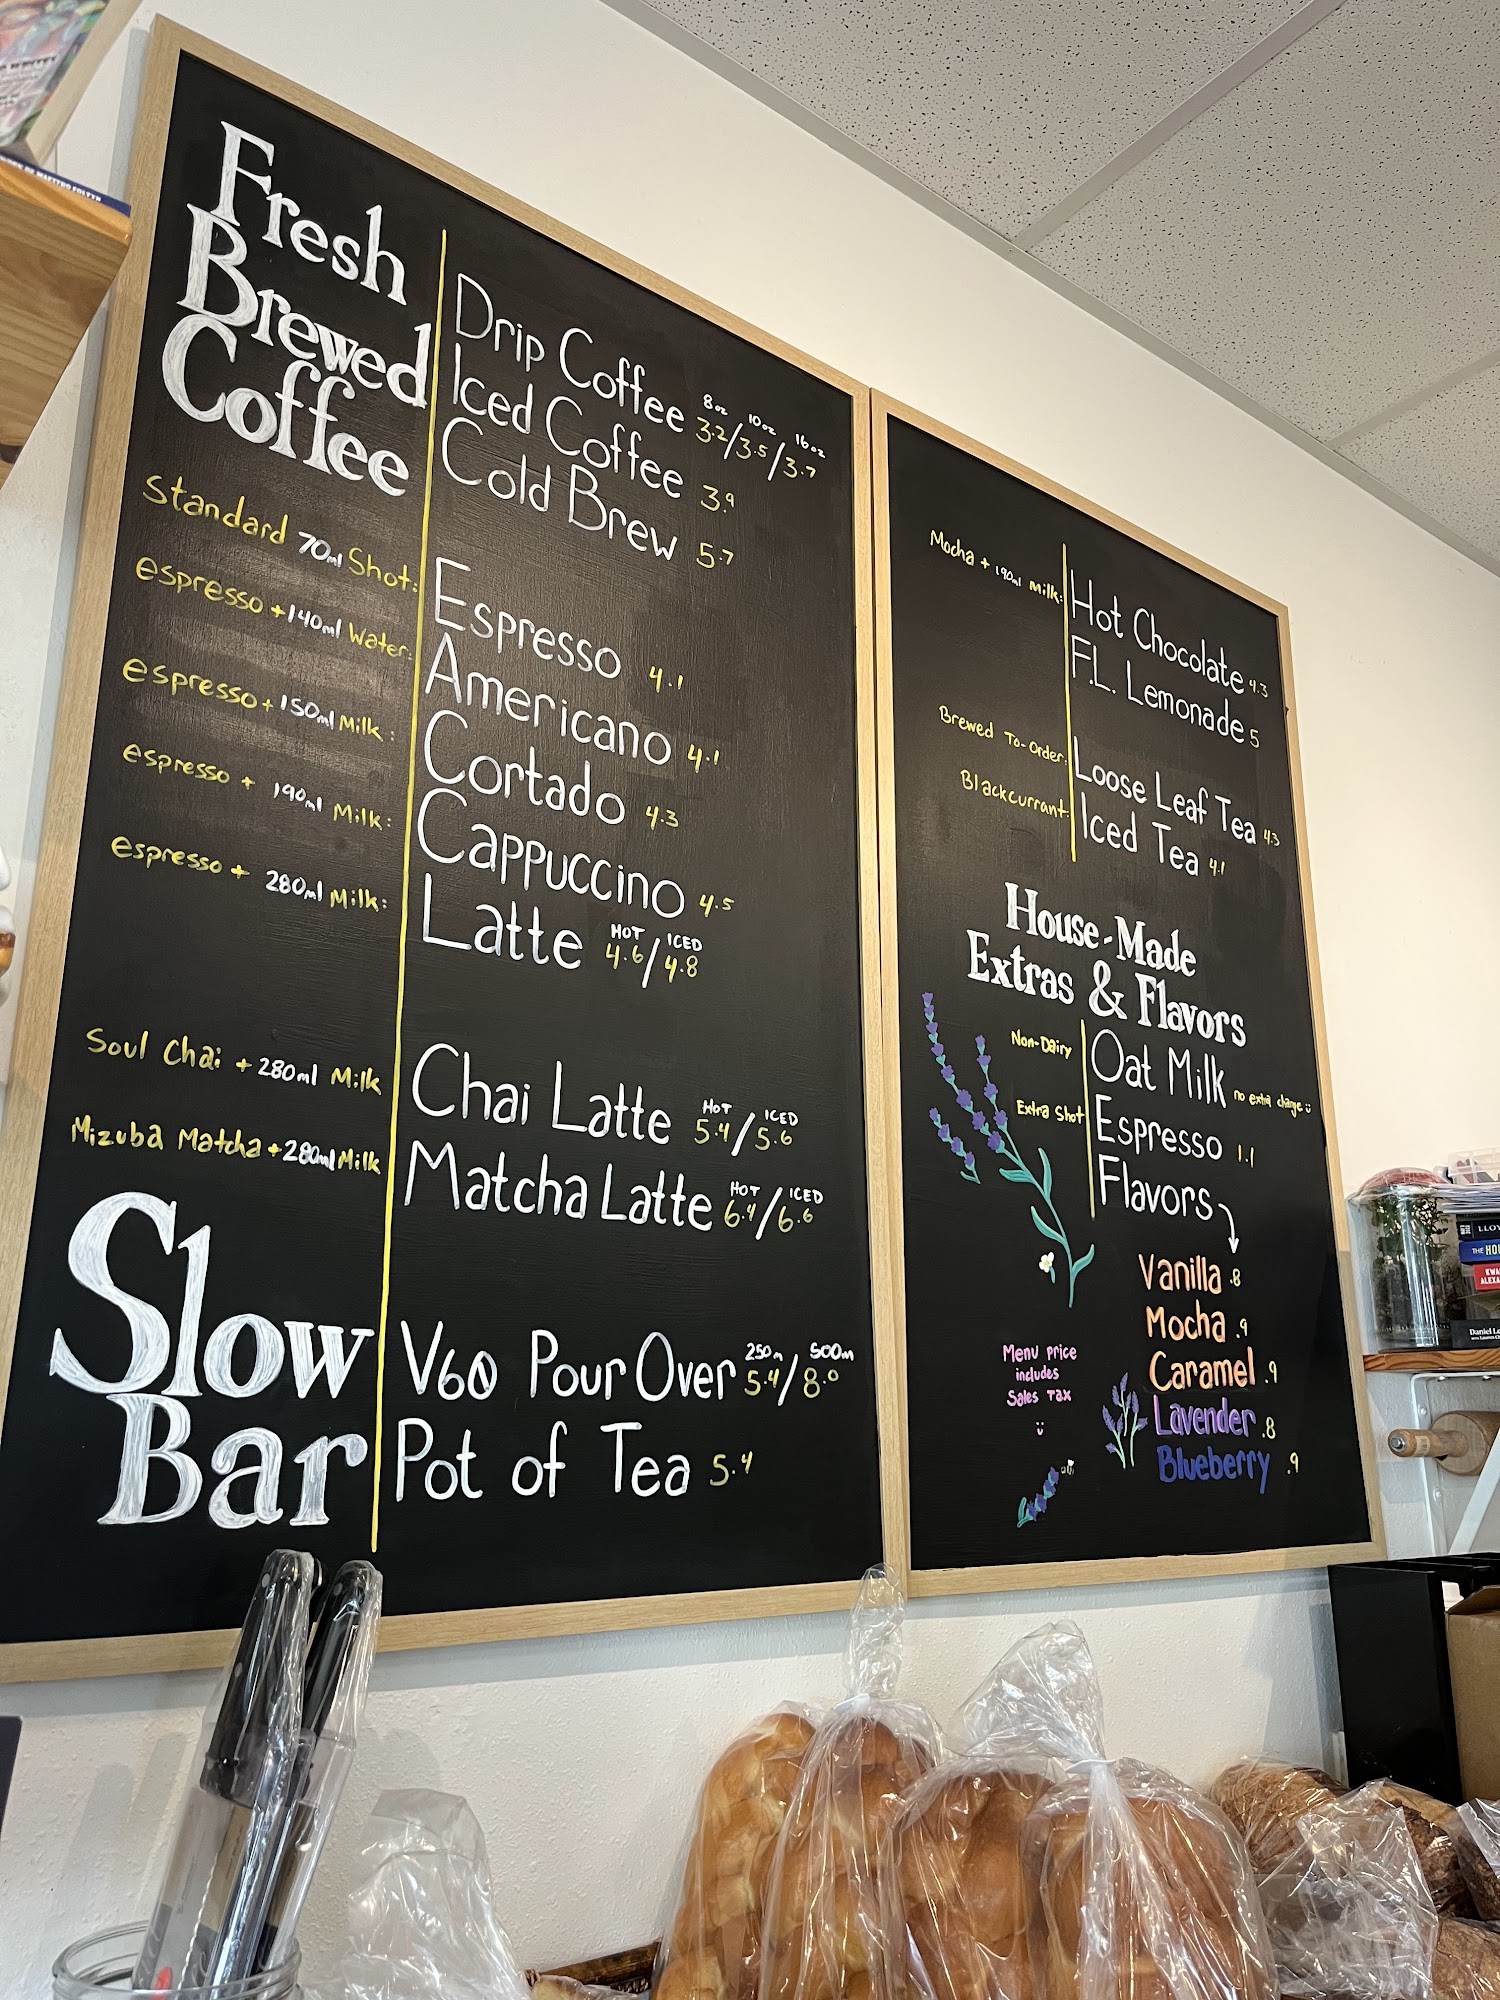 Fresh
Brewed
Coffee
8oz 10oz 16oz
Drip Coffee 3.2/3.5/3.7
Iced Coffee 3.9
Cold Brew 5.7
Standard 70ml Shot: Espresso 4.1
espresso + 140ml Water: Americano 4.1
espresso + 150ml Milk: Cortado 4.3
espresso + 190ml Milk: Cappuccino 4.5
HOT ICED
espresso + 280ml Milk: Latte 4.6/4.8
HOT ICED
Soul Chai + 280ml Milk Chai Latte 5.4/5.6
HOT ICED
Mizuba Matcha + 280ml Milk Matcha Latte 6.4/6.6
Slow
Bar
250m 500m
V60 Pour Over 5.4/8.0
Pot of Tea 5.4
Mocha + 190ml Milk: Hot Chocolate 4.3
F.L. Lemonade 5
Brewed To-Order: Loose Leaf Tea 4.3
Blackcurrant: Iced Tea 4.1
House-Made
Extras & Flavors
Non-Dairy Oat Milk no extra charge
Extra Shot Espresso 1.1
Flavors
Vanilla .8
Mocha .9
Caramel .9
Lavender .8
Blueberry .9
Menu price
includes
Sales Tax